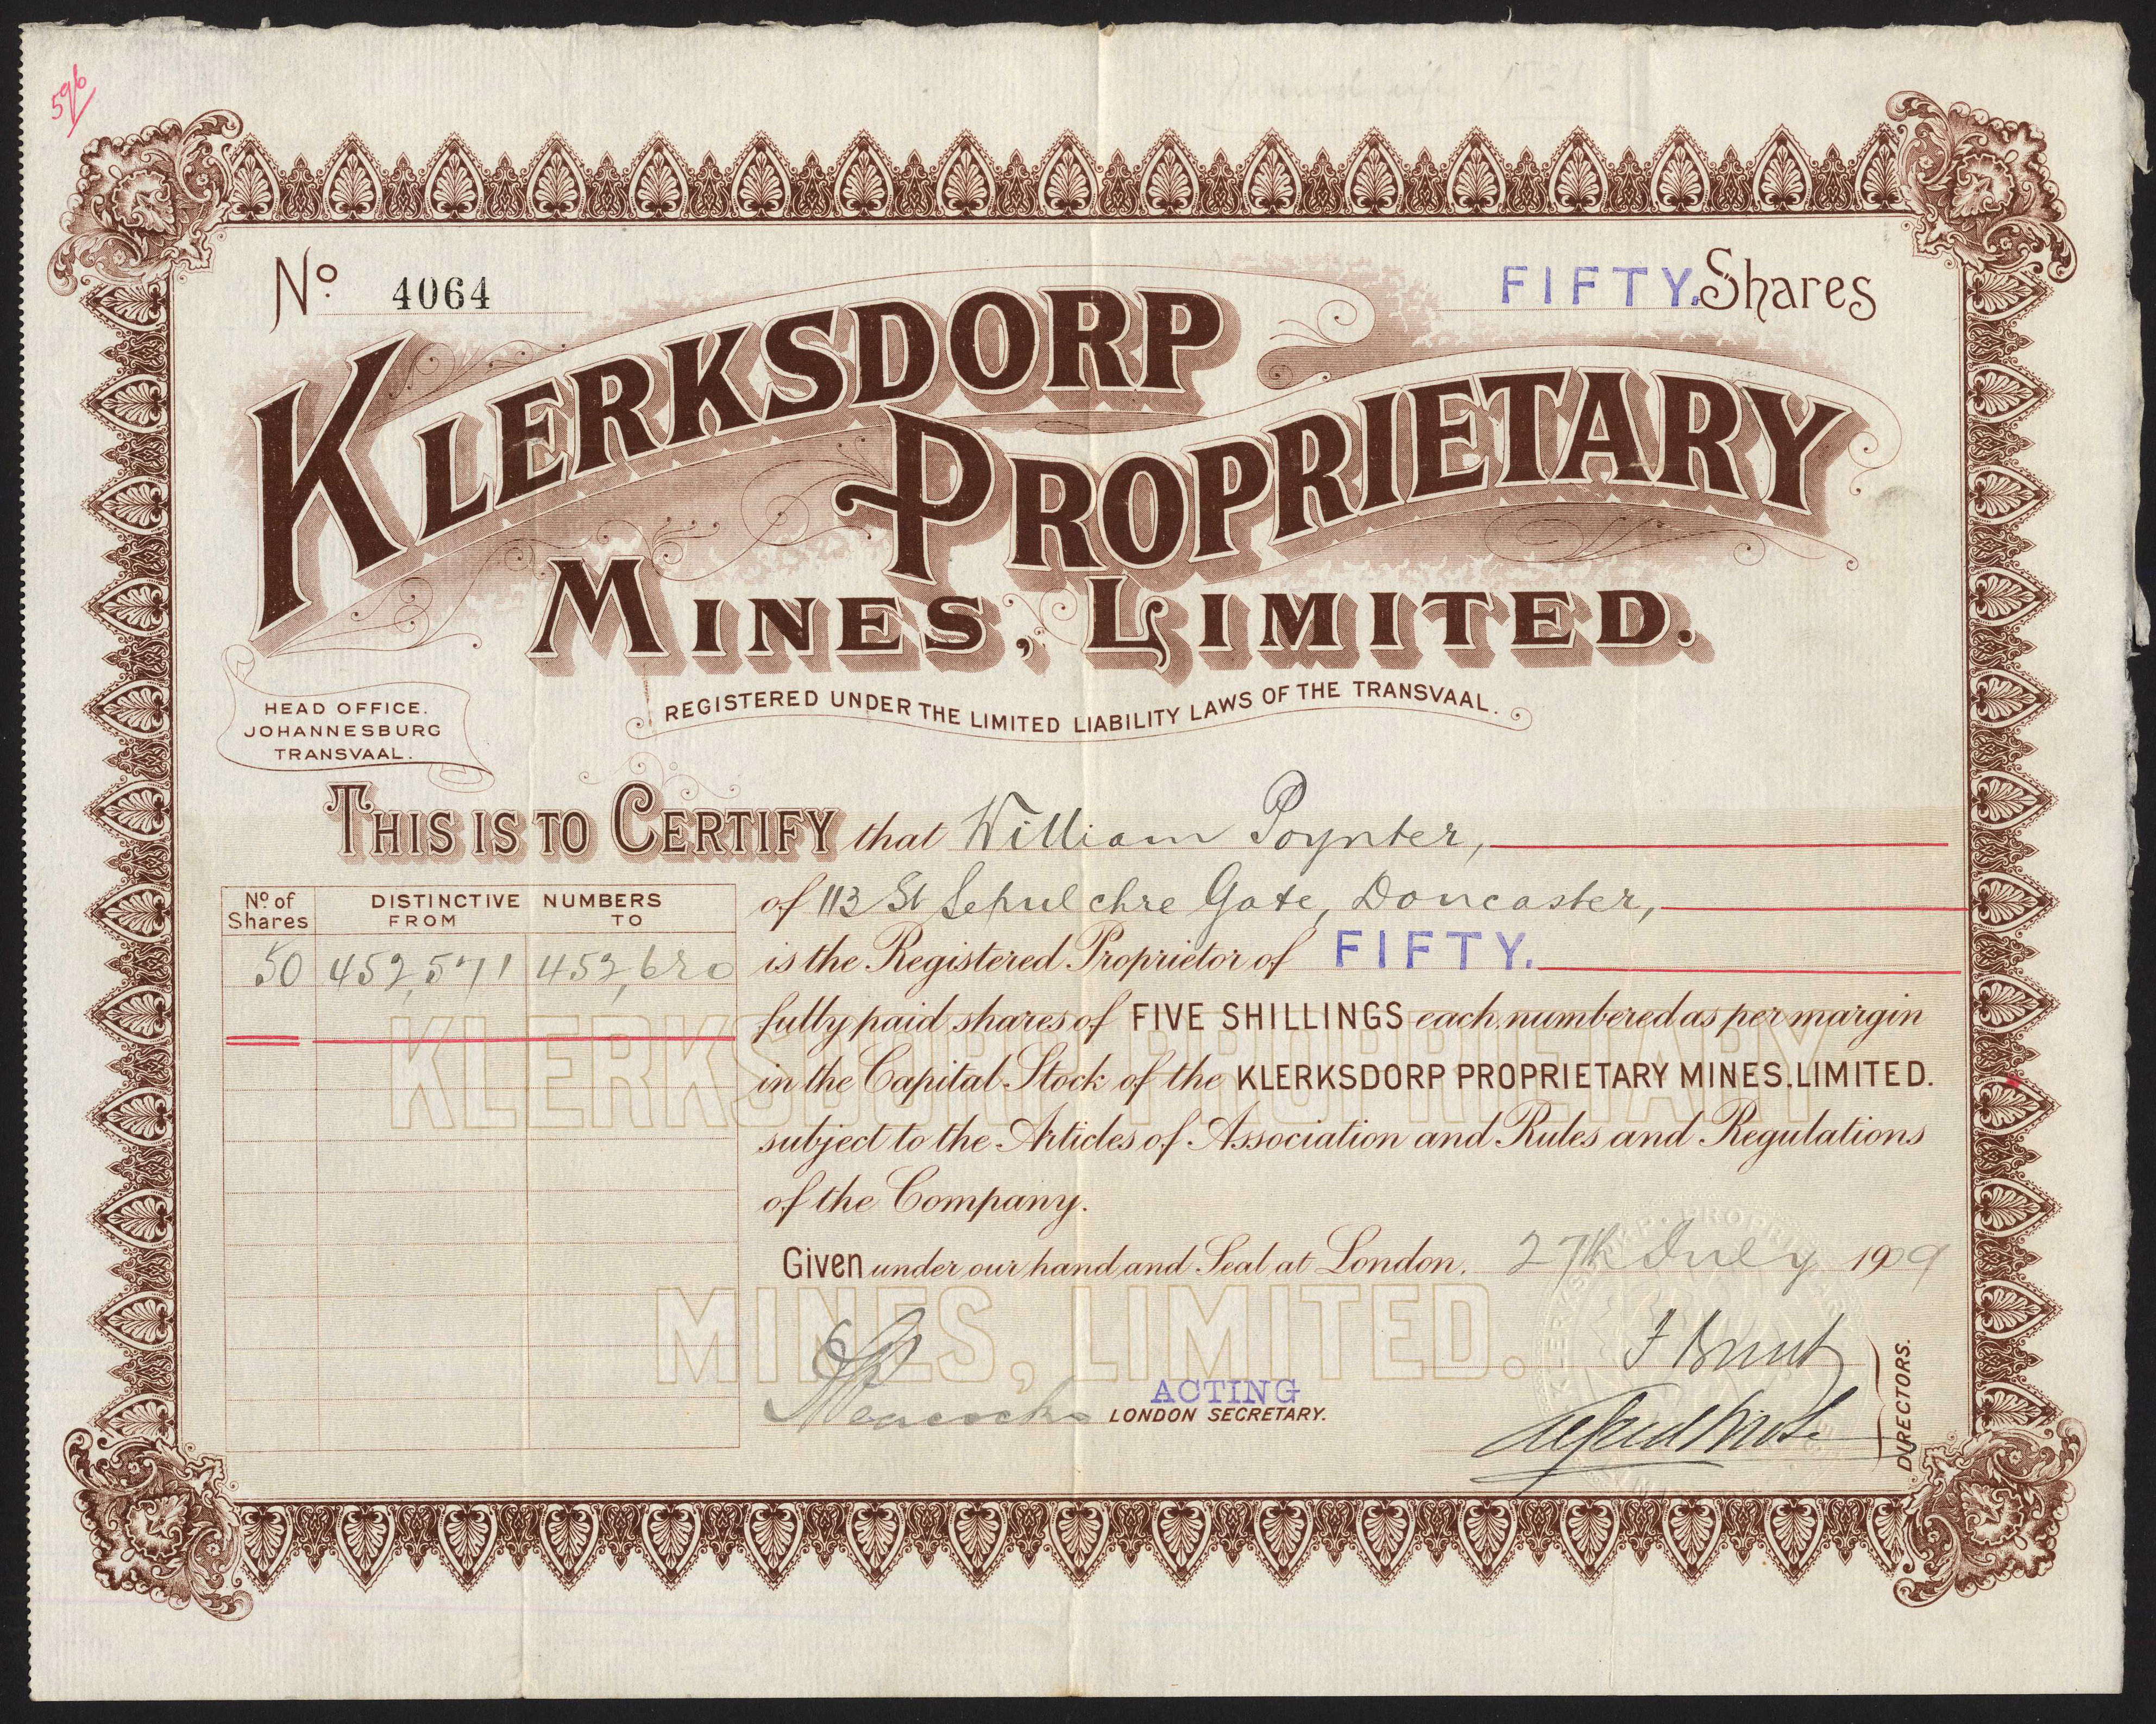 596
Nº. 4064
FIFTY. Shares
KLERKSDORP
PROPRIETARY
MINES, LIMITED.
REGISTERED UNDER THE LIMITED LIABILITY LAWS OF THE TRANSVAAL.
HEAD OFFICE.
JOHANNESBURG
TRANSVAAL.
THIS IS TO CERTIFY that William Poynter,
of 113 St Sepulchre Gate, Doncaster,
is the Registered Proprietor of FIFTY.
fully paid shares of FIVE SHILLINGS each, numbered as per margin
in the Capital Stock of the KLERKSDORP PROPRIETARY MINES, LIMITED.
subject to the Articles of Association and Rules and Regulations
of the Company.
Nº of Shares DISTINCTIVE NUMBERS
FROM TO
50 452,571 452,620
KLERKSDORP PROPRIETARY
MINES, LIMITED.
Given under our hand and Seal at London, 27th July 1909
Peacock
ACTING
LONDON SECRETARY.
DIRECTORS.